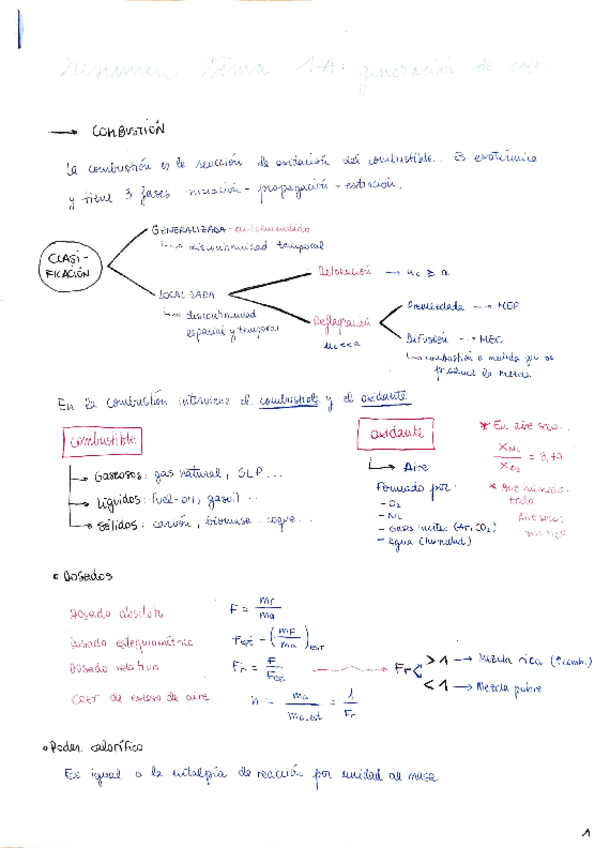 Resumen Tema 1A: generación de calor
→ COMBUSTIÓN
La combustión es la reacción de oxidación del combustible. Es exotérmica
y tiene 3 fases iniciación - propagación - extinción.
CLASI-
FICACIÓN
GENERALIZADA: autoencendido
↳ discontinuidad temporal
LOCALIZADA
↳ discontinuidad
espacial y temporal
Detonación → uc ≥ a
Deflagración
uc << a
Premezclada → MEP
Difusión → MEC
↳ combustión a medida que se
produce la mezcla
En la combustión intervienen el combustible y el oxidante
combustible
→ Gaseosos: gas natural, SLP...
→ Líquidos: fuel-oil, gasoil...
→ Sólidos: carbón, biomasa, coque...
oxidante
↳ Aire
Formado por:
- O2
- N2
- Gases inertes (Ar, CO2)
- Agua (humedad)
* En aire seco...
XN2 / XO2 = 3,77
* Aire
Aire seco:
• Dosados
Dosado absoluto F = mF / ma
Dosado estequiométrico Fest = (mF / ma)EST
Dosado relativo Fr = F / Fest
Fr
> 1 → Mezcla rica (↑comb.)
< 1 → Mezcla pobre
COEF de exceso de aire n = ma / ma,est = 1 / Fr
• Poder calorífico
Es igual a la entalpía de reacción por unidad de masa
1